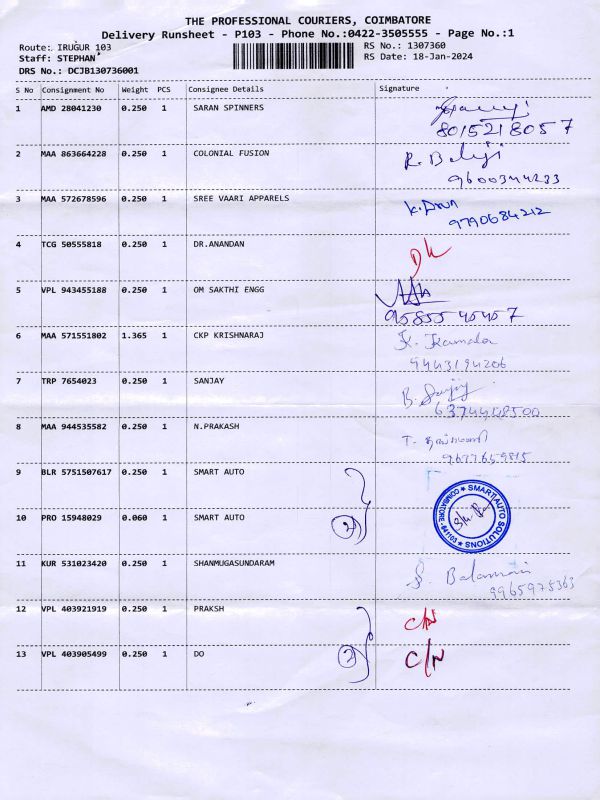 THE PROFESSIONAL COURIERS, COIMBATORE
Delivery Runsheet - P103 - Phone No.:0422-3505555 - Page No.:1
Route: IRUGUR 103 RS No.: 1307360
Staff: STEPHAN RS Date: 18-Jan-2024
DRS No.: DCJB130736001
S No Consignment No Weight PCS Consignee Details Signature
1 AMD 28041230 0.250 1 SARAN SPINNERS
8015218057
2 MAA 863664228 0.250 1 COLONIAL FUSION R. Balaji
9600344233
3 MAA 572678596 0.250 1 SREE VAARI APPARELS K. Arun
9790684212
4 TCG 50555818 0.250 1 DR.ANANDAN
5 VPL 943455188 0.250 1 OM SAKTHI ENGG
9585545457
6 MAA 571551802 1.365 1 CKP KRISHNARAJ K. Kamala
9443194206
7 TRP 7654023 0.250 1 SANJAY B. Sanjay
6374448500
8 MAA 944535582 0.250 1 N.PRAKASH
9677659815
9 BLR 5751507617 0.250 1 SMART AUTO
10 PRO 15948029 0.060 1 SMART AUTO 2
SMART AUTO SOLUTIONS
11 KUR 531023420 0.250 1 SHANMUGASUNDARAM
9965975363
12 VPL 403921919 0.250 1 PRAKSH C/N
13 VPL 403905499 0.250 1 DO 2 C/N